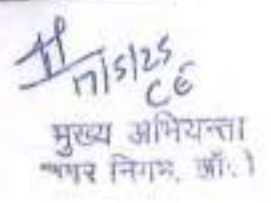 17/5/25
CE
मुख्य अभियन्ता
नगर निगम,